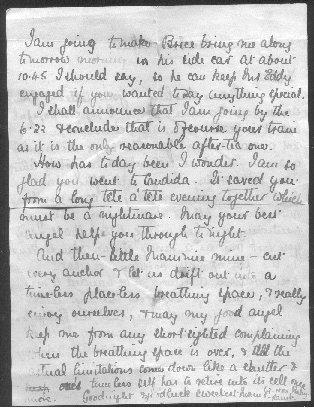 I am going to make Brice bring me along
tomorrow morning in his side car at about
10.45 I should say, so he can keep Mrs Eddy
engaged if you wanted to say anything special.
I shall announce that I am going by the
6.22 & conclude that is of course your train
as it is the only reasonable after-tea one.
How has today been I wonder. I am so
glad you went to Candida. It saved you
from a long tête à tête evening together which
must be a nightmare. May your best
angel help you through to night.
And then little mine – cut
every anchor & let us drift out into a
timeless placeless breathing space, & really
enjoy ourselves, & may my good angel
keep me from any short sighted complaining
when the breathing space is over, & all the
actual limitations come down like a shutter &
ones timeless self has to retire into its cell once
more. Goodnight & good luck sweetest